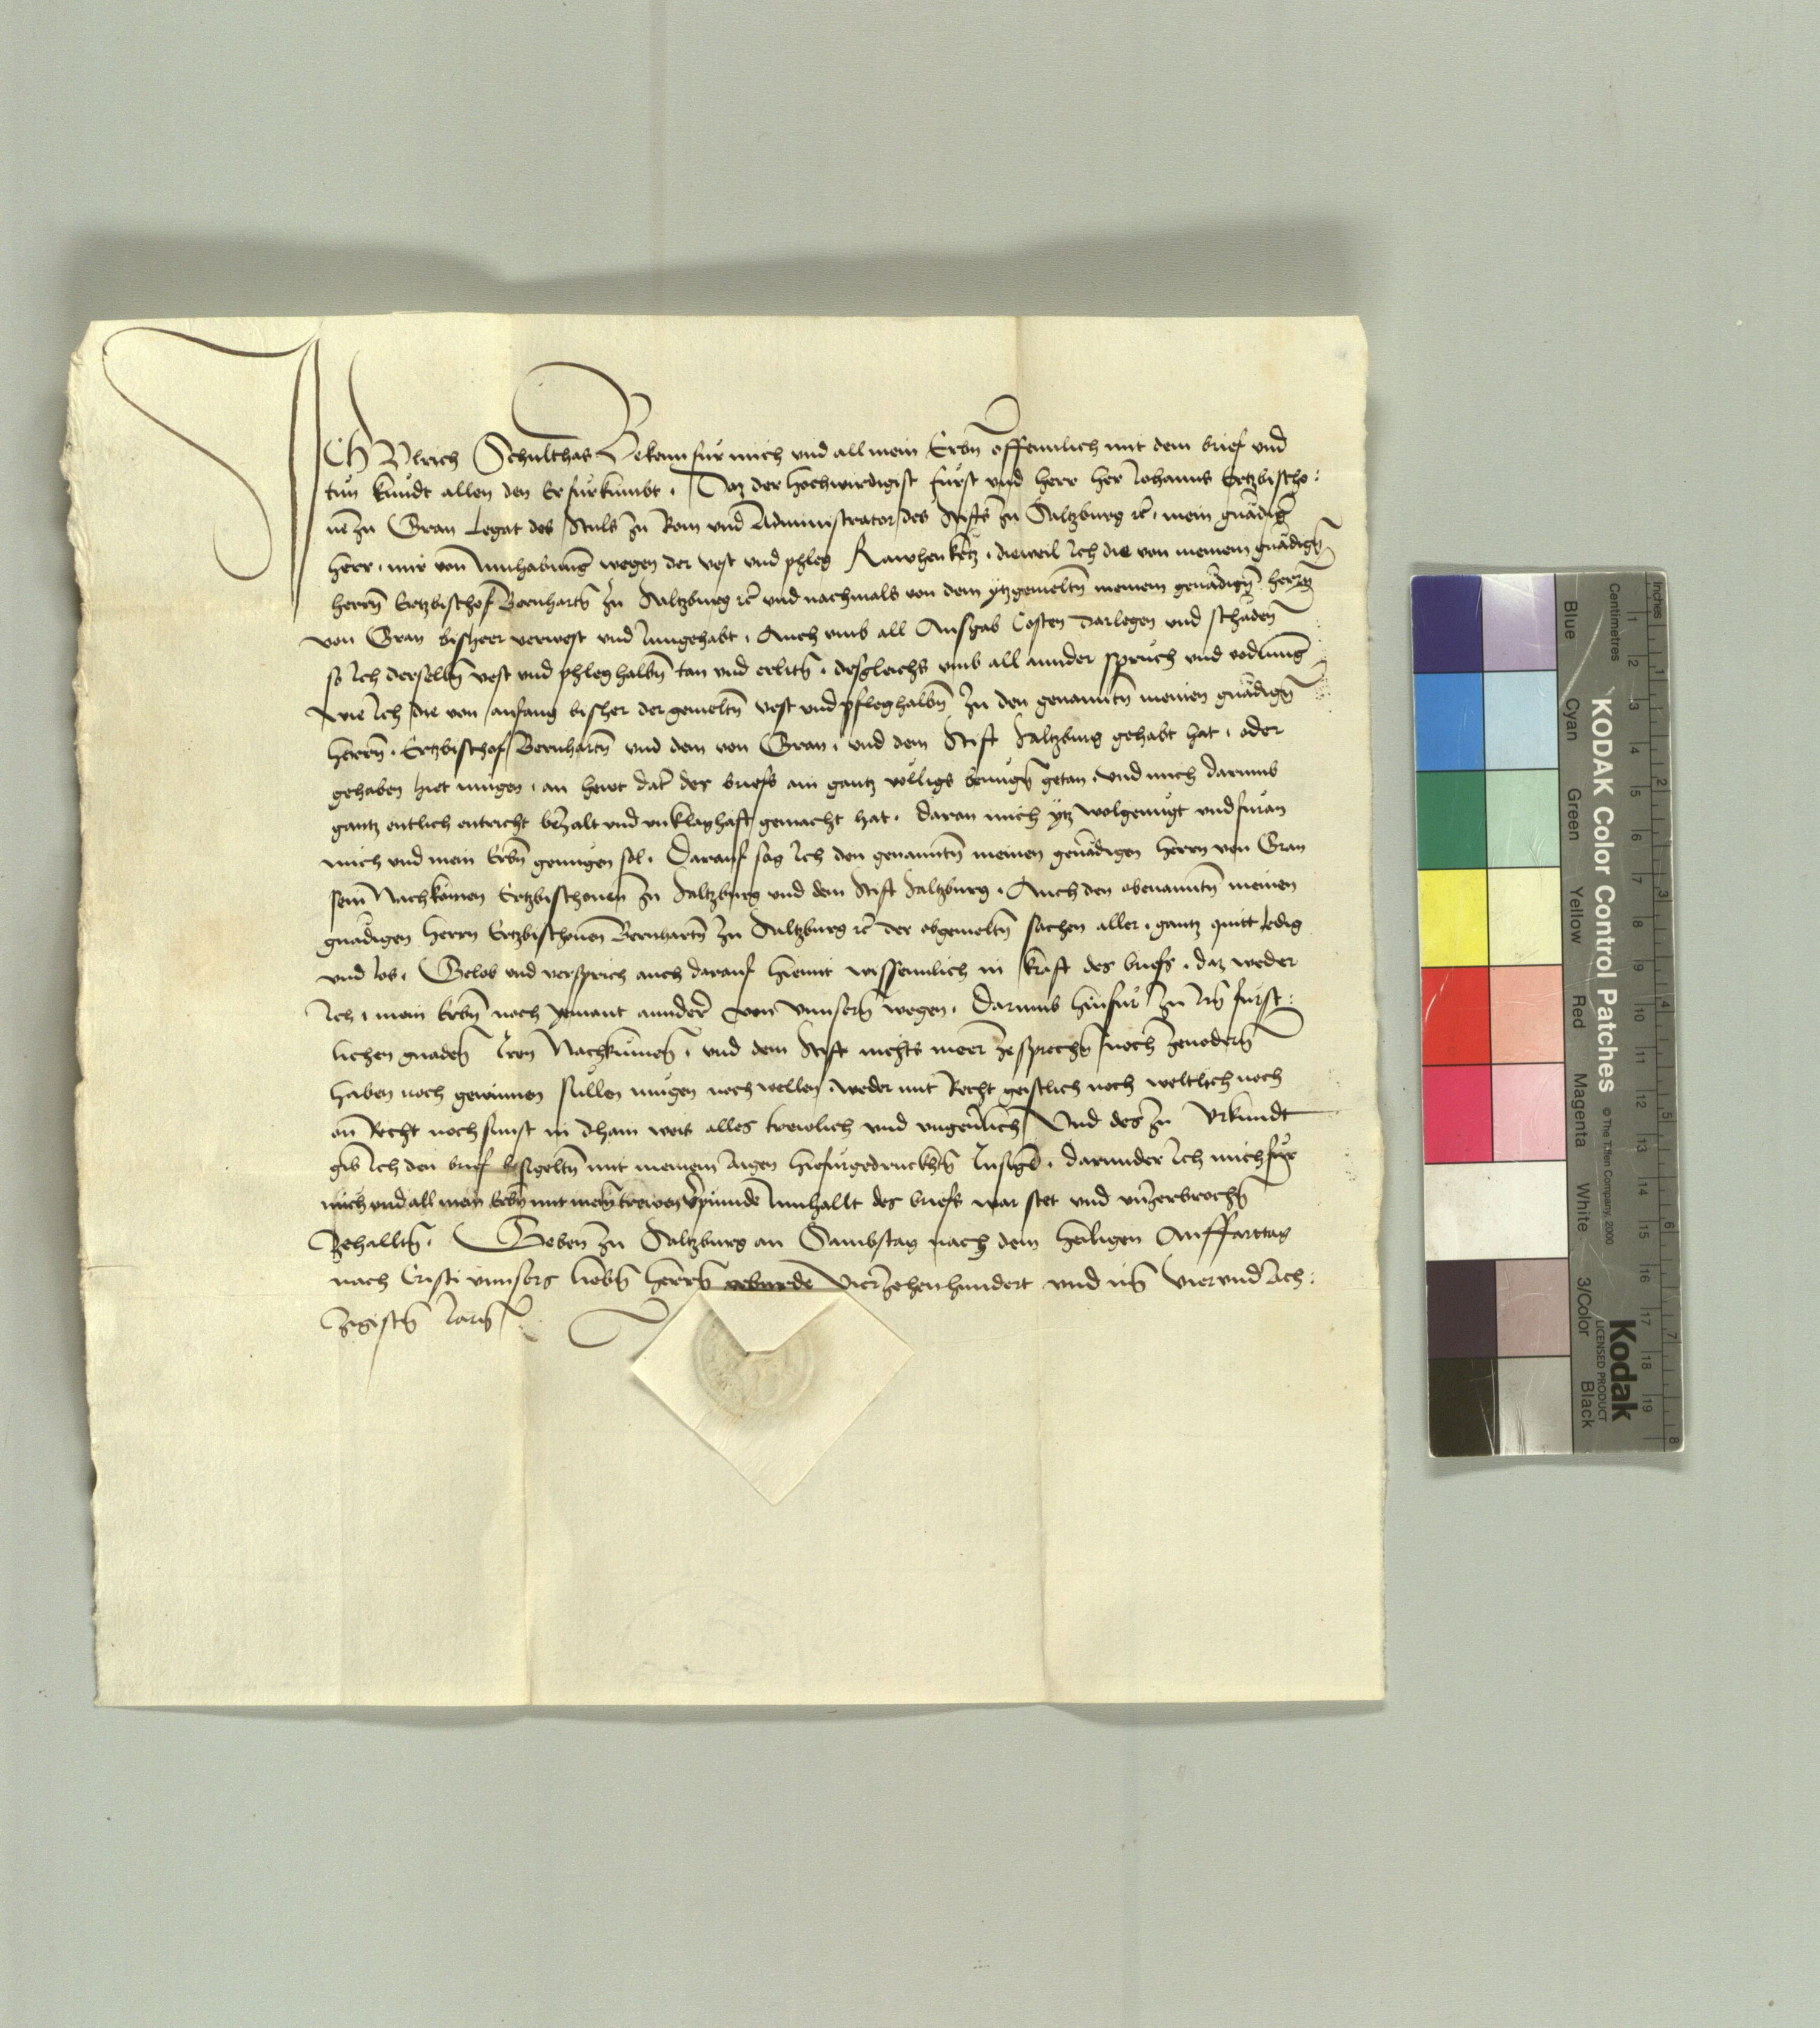 Ich Vlrich Schulthas Bekenn fur mich vnd all mein Erbn offennlich mit dem brief vnd
tun kundt allen den Er furkumbt. Daz der hochwirdigist furst vnd herr her Johanns Ertzbischo:
ue zu Gran Legat des Stuls zu Rom vnd Administrator des Stiffts zu Saltzburg rc. mein gnådig
herr. mir von Innhabung wegen der vest vnd phleg Rawhenketz. dieweil Ich die von meinem gnådign
herrn Ertzbischof Bernhartn zu Saltzburg rc vnd nachmals von dem ytzgemeltn meinem genådign herrn
von Gran bisheer verwest vnd Inngehabt. Auch vmb all Ausgab Costen darlegen vnd schåden
so Ich derselbn vest vnd phleg halbn tan vnd erlitn. desgleichs vmb all annder spruch vnd vodrung
wie Ich die von anfang bisher der gemeltn vest vnd pfleg halbn zu den genanntn meinen gnådign
herrn. Ertzbischof Bernhartn vnd dem von Gran. vnd dem Stift Saltzburg gehabt hat. oder
gehaben hiet mugen. an hewt dat des briefs ain gantz volligs benugn getan. vnd mich darumb
gantz entlich entricht bezalt vnd vnklaghaft gemacht hat. daran mich ytz wolgenugt vnd furan
mich vnd mein Erbn genugen sol. Darauf sag Ich den genanntn meinen genådigen herrn von Gran
sein Nachkomen Ertzbischouen zu Saltzburg vnd dem Stift Saltzburg. Auch den obenanntn meinen
gnådigen herrn Ertzbischouen Bernhartn zu Saltzburg rc der obgemeltn sachen aller. gantz quitt ledig
vnd los. Gelob vnd versprich auch darauf hiemit wissenntlich in kraft des briefs. daz weder
Ich. mein Erbn noch yemant annder von vnnsern wegen. Darumb hinfur zu Irn furst:
lichen gnaden Iren Nachkumen. vnd dem Stift nichts meer zesprechn noch zeuodern
haben noch gewinnen sullen mugen noch wellen. weder mit Recht geistlich noch weltlich noch
on Recht noch sunst in dhain weis alles trewlich vnd vngeuerlich Vnd des zu Vrkundt
gib Ich den brief besigeltn mit meinem aigen hiefurgedrucktn Insigl. darunder Ich mich fur
mich vnd all mein Erbn mit mein trewen verpinnde Innhallt des briefs war stet vnd vnzerbrochn
Zehalltn. Geben zu Saltzburg an Sambstag nach dem heiligen Auffarttag
nach Cristi vnnsers liebn herrn geburde Vierzehenhundert vnd im Viervnd Ach:
zigistn Iarn
KODAK Color Control Patches
© The Tiffen Company, 2000
Kodak
LICENSED PRODUCT
Inches 1 2 3 4 5 6 7 8
Centimetres 1 2 3 4 5 6 7 8 9 10 11 12 13 14 15 16 17 18 19
Blue Cyan Green Yellow Red Magenta White 3/Color Black